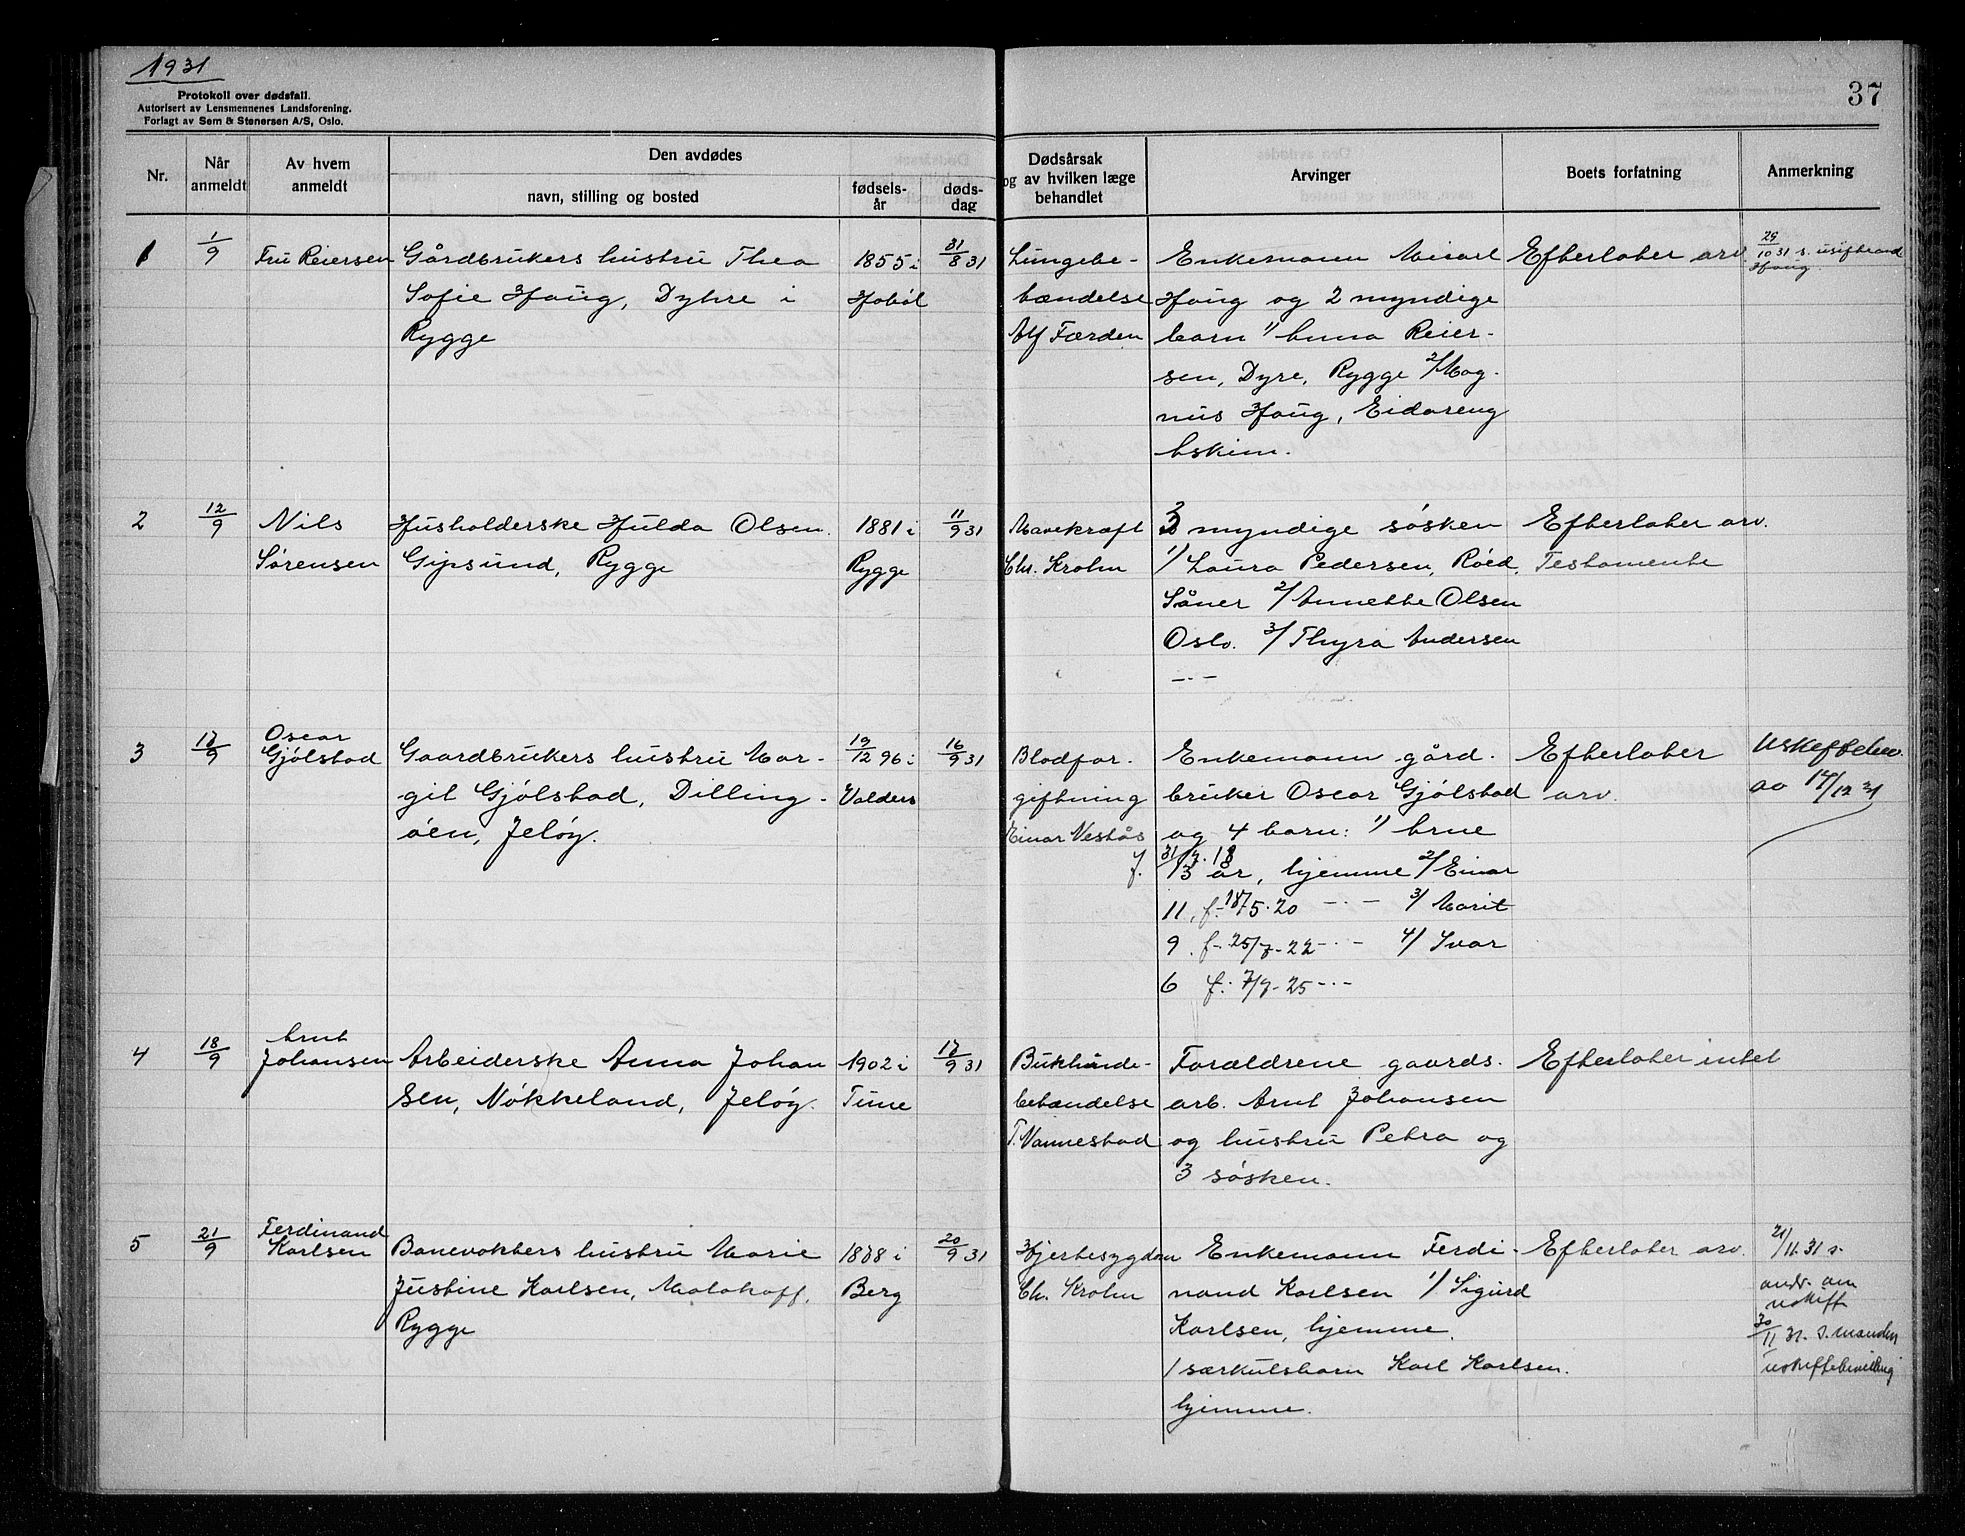 1931
Protokoll over dødsfall.
Autorisert av Lensmennenes Landsforening.
Forlagt av Sem & Stenersen A/S, Oslo.
37
Nr.
Når anmeldt
Av hvem anmeldt
Den avdødes
navn, stilling og bosted
fødsels-år
døds-dag
Dødsårsak og av hvilken læge behandlet
Arvinger
Boets forfatning
Anmerkning
1
1/9
Fru Reiersen
Gårdbrukers hustru Thea
Sofie Haug, Dyhre i
Rygge
1855 i
Hobøl
31/8 31
Lungebe-
tændelse
Alf Færden
Enkemann
Haug og 2 myndige
barn 1/ Anna Reier-
sen, Dyre, Rygge 2/ Mag-
nus Haug, Eidareng
Askim.
Efterlater arv
29/10 31 s.
Haug
2
12/9
Nils
Sørensen
Husholderske Hulda Olsen.
Gipsund, Rygge
1881 i
Rygge
11/9 31
Mavekræft
Chr. Krohn
3 myndige søsken
1/ Laura Pedersen, Røed,
Såner 2/ Annette Olsen
Oslo. 3/ Thyra Andersen
— · —
Efterlater arv.
Testamente
3
17/9
Oscar
Gjølstad
Gaardbrukers hustru Mar-
git Gjølstad, Dilling-
øen, Jeløy.
19/12 96 i
Valders
16/9 31
Blodfor-
giftning
Einar Vestås
Enkemann gård-
bruker Oscar Gjølstad
og 4 barn: 1/ Arne
f. 31/7. 18
13 år, hjemme 2/ Einar
11, f. 18/5. 20 — · — 3/ Marit
9. f. 25/7 - 22 — · — 4/ Ivar
6 f. 7/7 - 25 — · —
Efterlater
arv.
Uskiftebev.
ao 14/12 31
4
18/9
Arnt
Johansen
Arbeiderske Anna Johan
sen, Nøkkeland, Jeløy.
1902 i
Tune
17/9 31
Bukhinde-
betændelse
T. Vannestad
Forældrene gaards-
arb. Arnt Johansen
og hustru Petra og
3 søsken.
Efterlater intet
5
21/9
Ferdinand
Karlsen
Banevokters hustru Marie
Justine Karlsen, Malakoff,
Rygge
1878 i
Berg
20/9 31
Hjertesygdom
Chr. Krohn
Enkemann Ferdi-
nand Karlsen 1/ Sigurd
Karlsen, hjemme.
1 særkulsbarn Karl Karlsen.
hjemme.
Efterlater arv.
21/11. 31 s.
andr. om
uskift
30/11 31. s. manden
uskiftebevilling